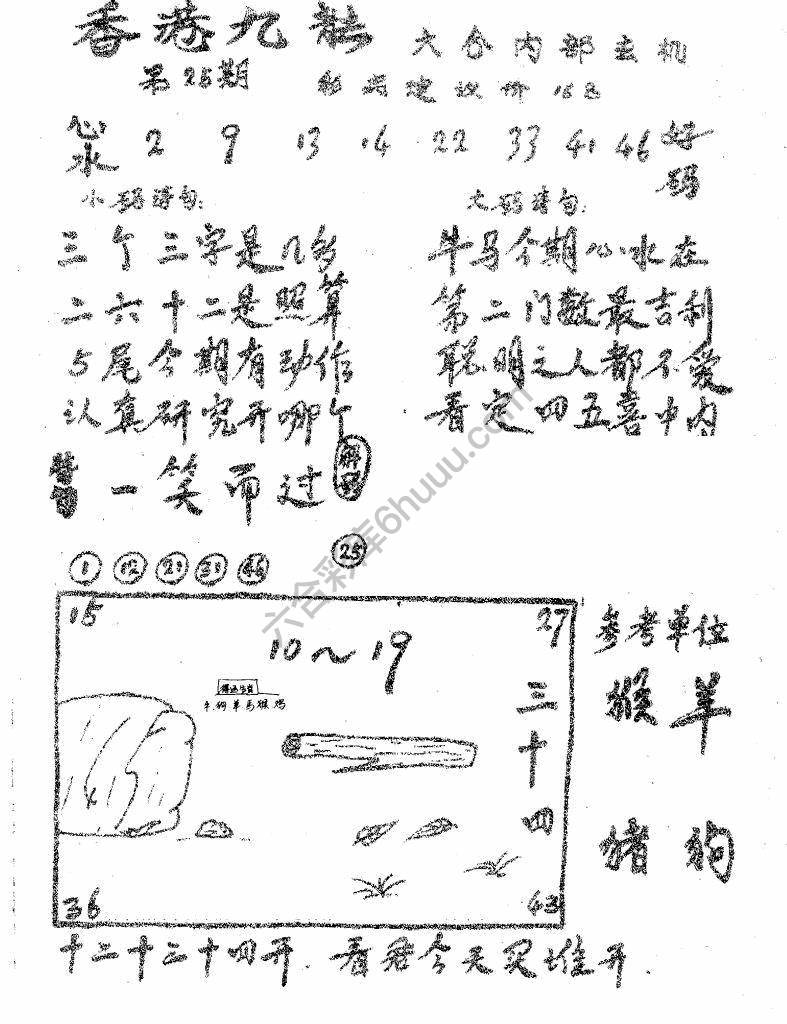 香港九龙 六合内部玄机
第25期
心水 2 9 13 14 22 33 41 46 好码
小码诗句: 大码诗句:
三个三字是几多
二六十二是照算
5尾今期有动作
认真研究开哪个
牛马今期心水在
第二门数最吉利
聪明之人都不爱
看定四五喜中内
一笑而过
25
1 12 21 31 46
15 27
10~19
牛狗羊马猴鸡
三十四
36 43
参考单位
猴羊
猪狗
十二十三十四开.看君今天买谁开.
六合彩库6huuu.com